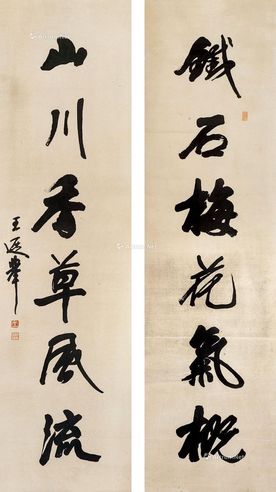 鐵石梅花氣概
山川香草風流
王遐舉